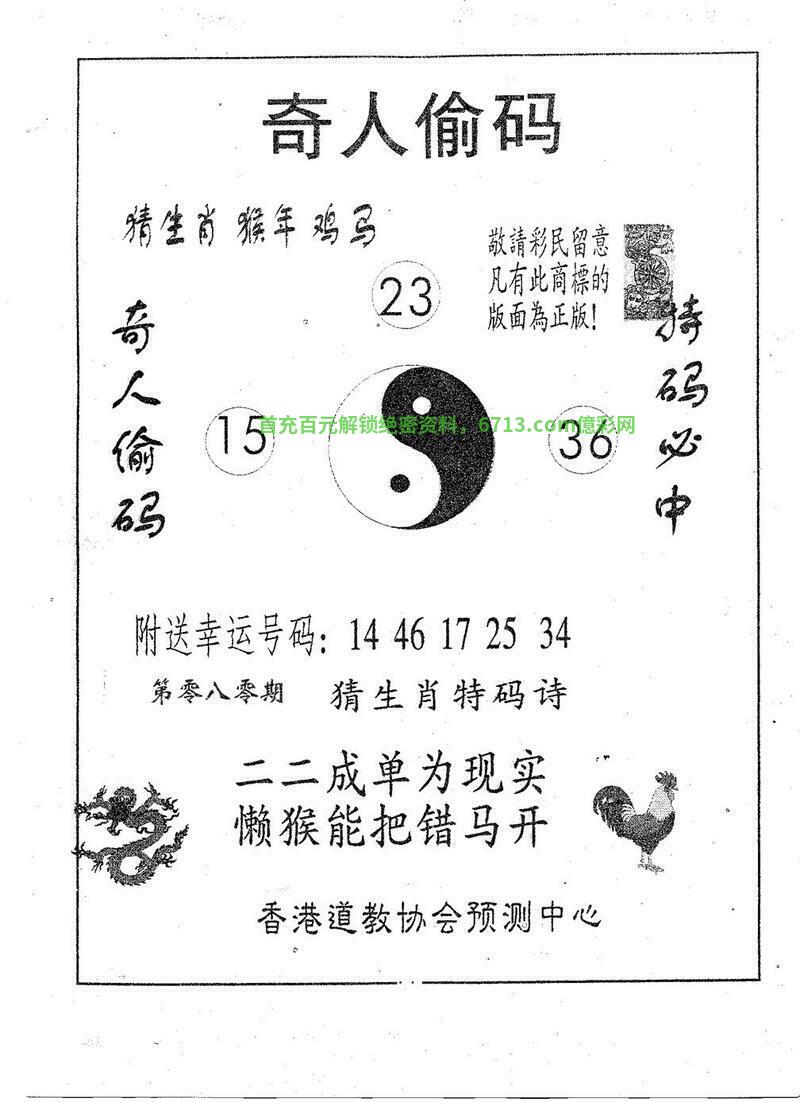 奇人偷码
猜生肖 猴年鸡马
敬請彩民留意
凡有此商標的
版面為正版！
23
奇人偷码
特码必中
15
36
首充百元解锁绝密资料，6713.com億彩网
附送幸运号码：14 46 17 25 34
第零八零期 猜生肖特码诗
二二成单为现实
懒猴能把错马开
香港道教协会预测中心